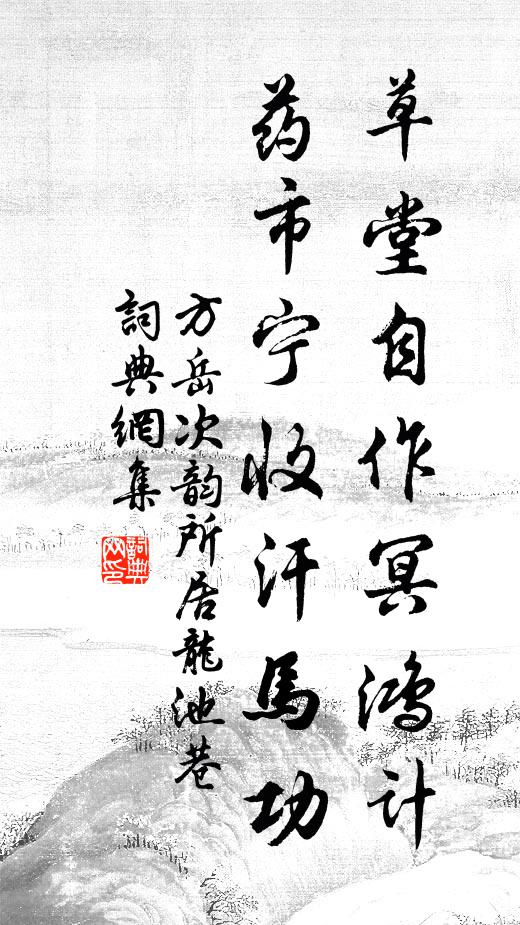 草堂自作冥鸿计
药市宁收汗馬功
方岳次韵所居龍池巷
詞典網集
詞典网印